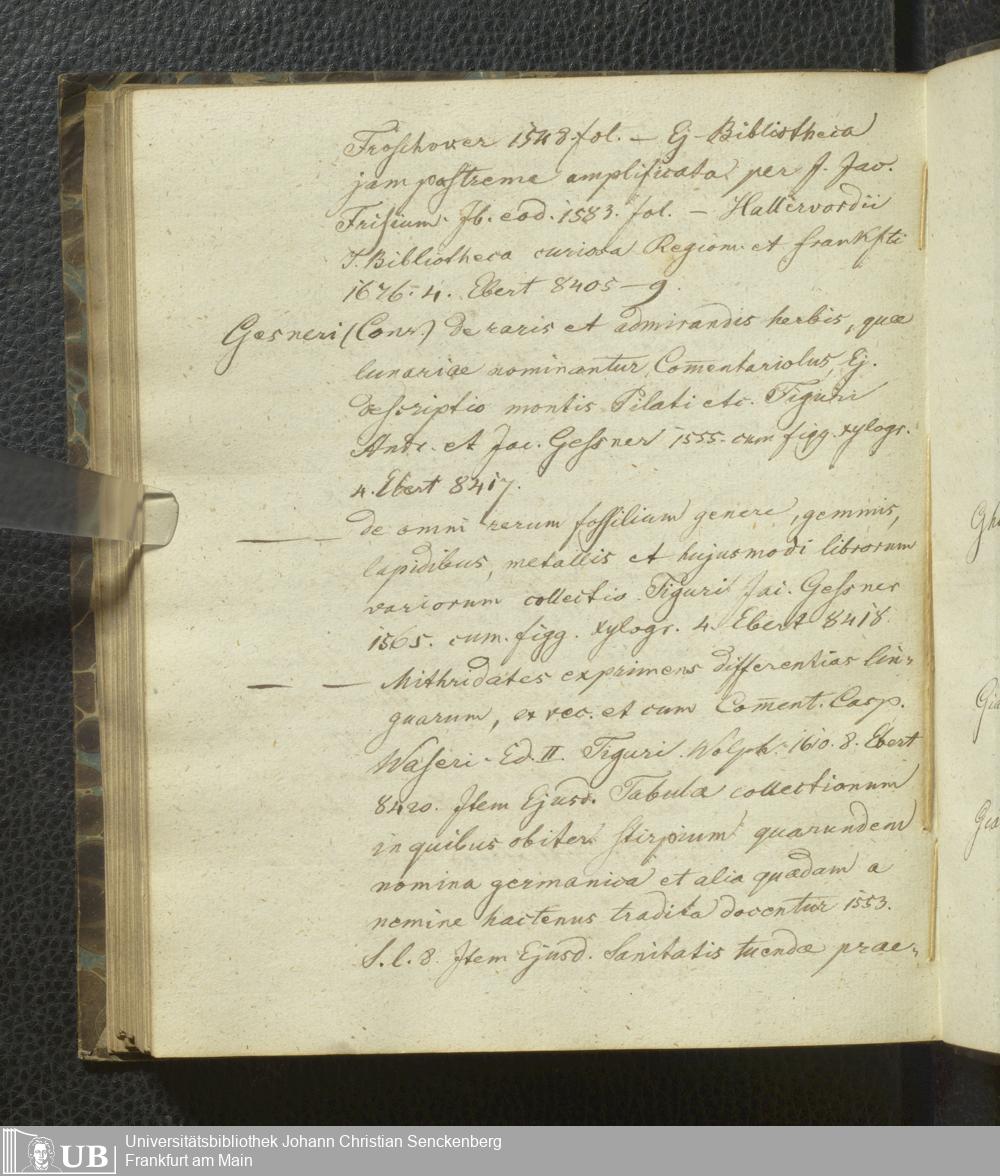 Froschover 1548 fol. — Ej. Bibliotheca
jam postreme amplificata per J. Jac.
Frisium. Ib. eod. 1583. fol. — Hallervordii
J. Bibliotheca curiosa Regiom. et frankfti
1676. 4. Ebert 8405—9.
Gesneri (Conr.) de raris et admirandis herbis, quæ
lunariae nominantur, Com̄entariolus, Ej.
descriptio montis Pilati etc. Tiguri
Andr. et Jac. Gessner 1555. cum figg. xylogr.
4. Ebert 8417.
— — de omni rerum fossilium genere, gemmis,
lapidibus, metallis et hujusmodi librorum
variorum collectio. Tiguri Jac. Gessner
1565. cum. figg. xylogr. 4. Ebert 8418.
— — Mithridates exprimens differentias lin-
guarum, ex rec. et cum Com̄ent. Casp.
Waseri. Ed. II. Tiguri. Wolph. 1610. 8. Ebert
8420. Item Ejusd. Tabula collectionum
in quibus obiter stirpium quarundem
nomina germanica et alia quædam a
nemine hactenus tradita docentur 1553.
S. l. 8. Item Ejusd. Sanitatis tuendæ prae-
Gh
Gia
Gia
UB
Universitätsbibliothek Johann Christian Senckenberg
Frankfurt am Main